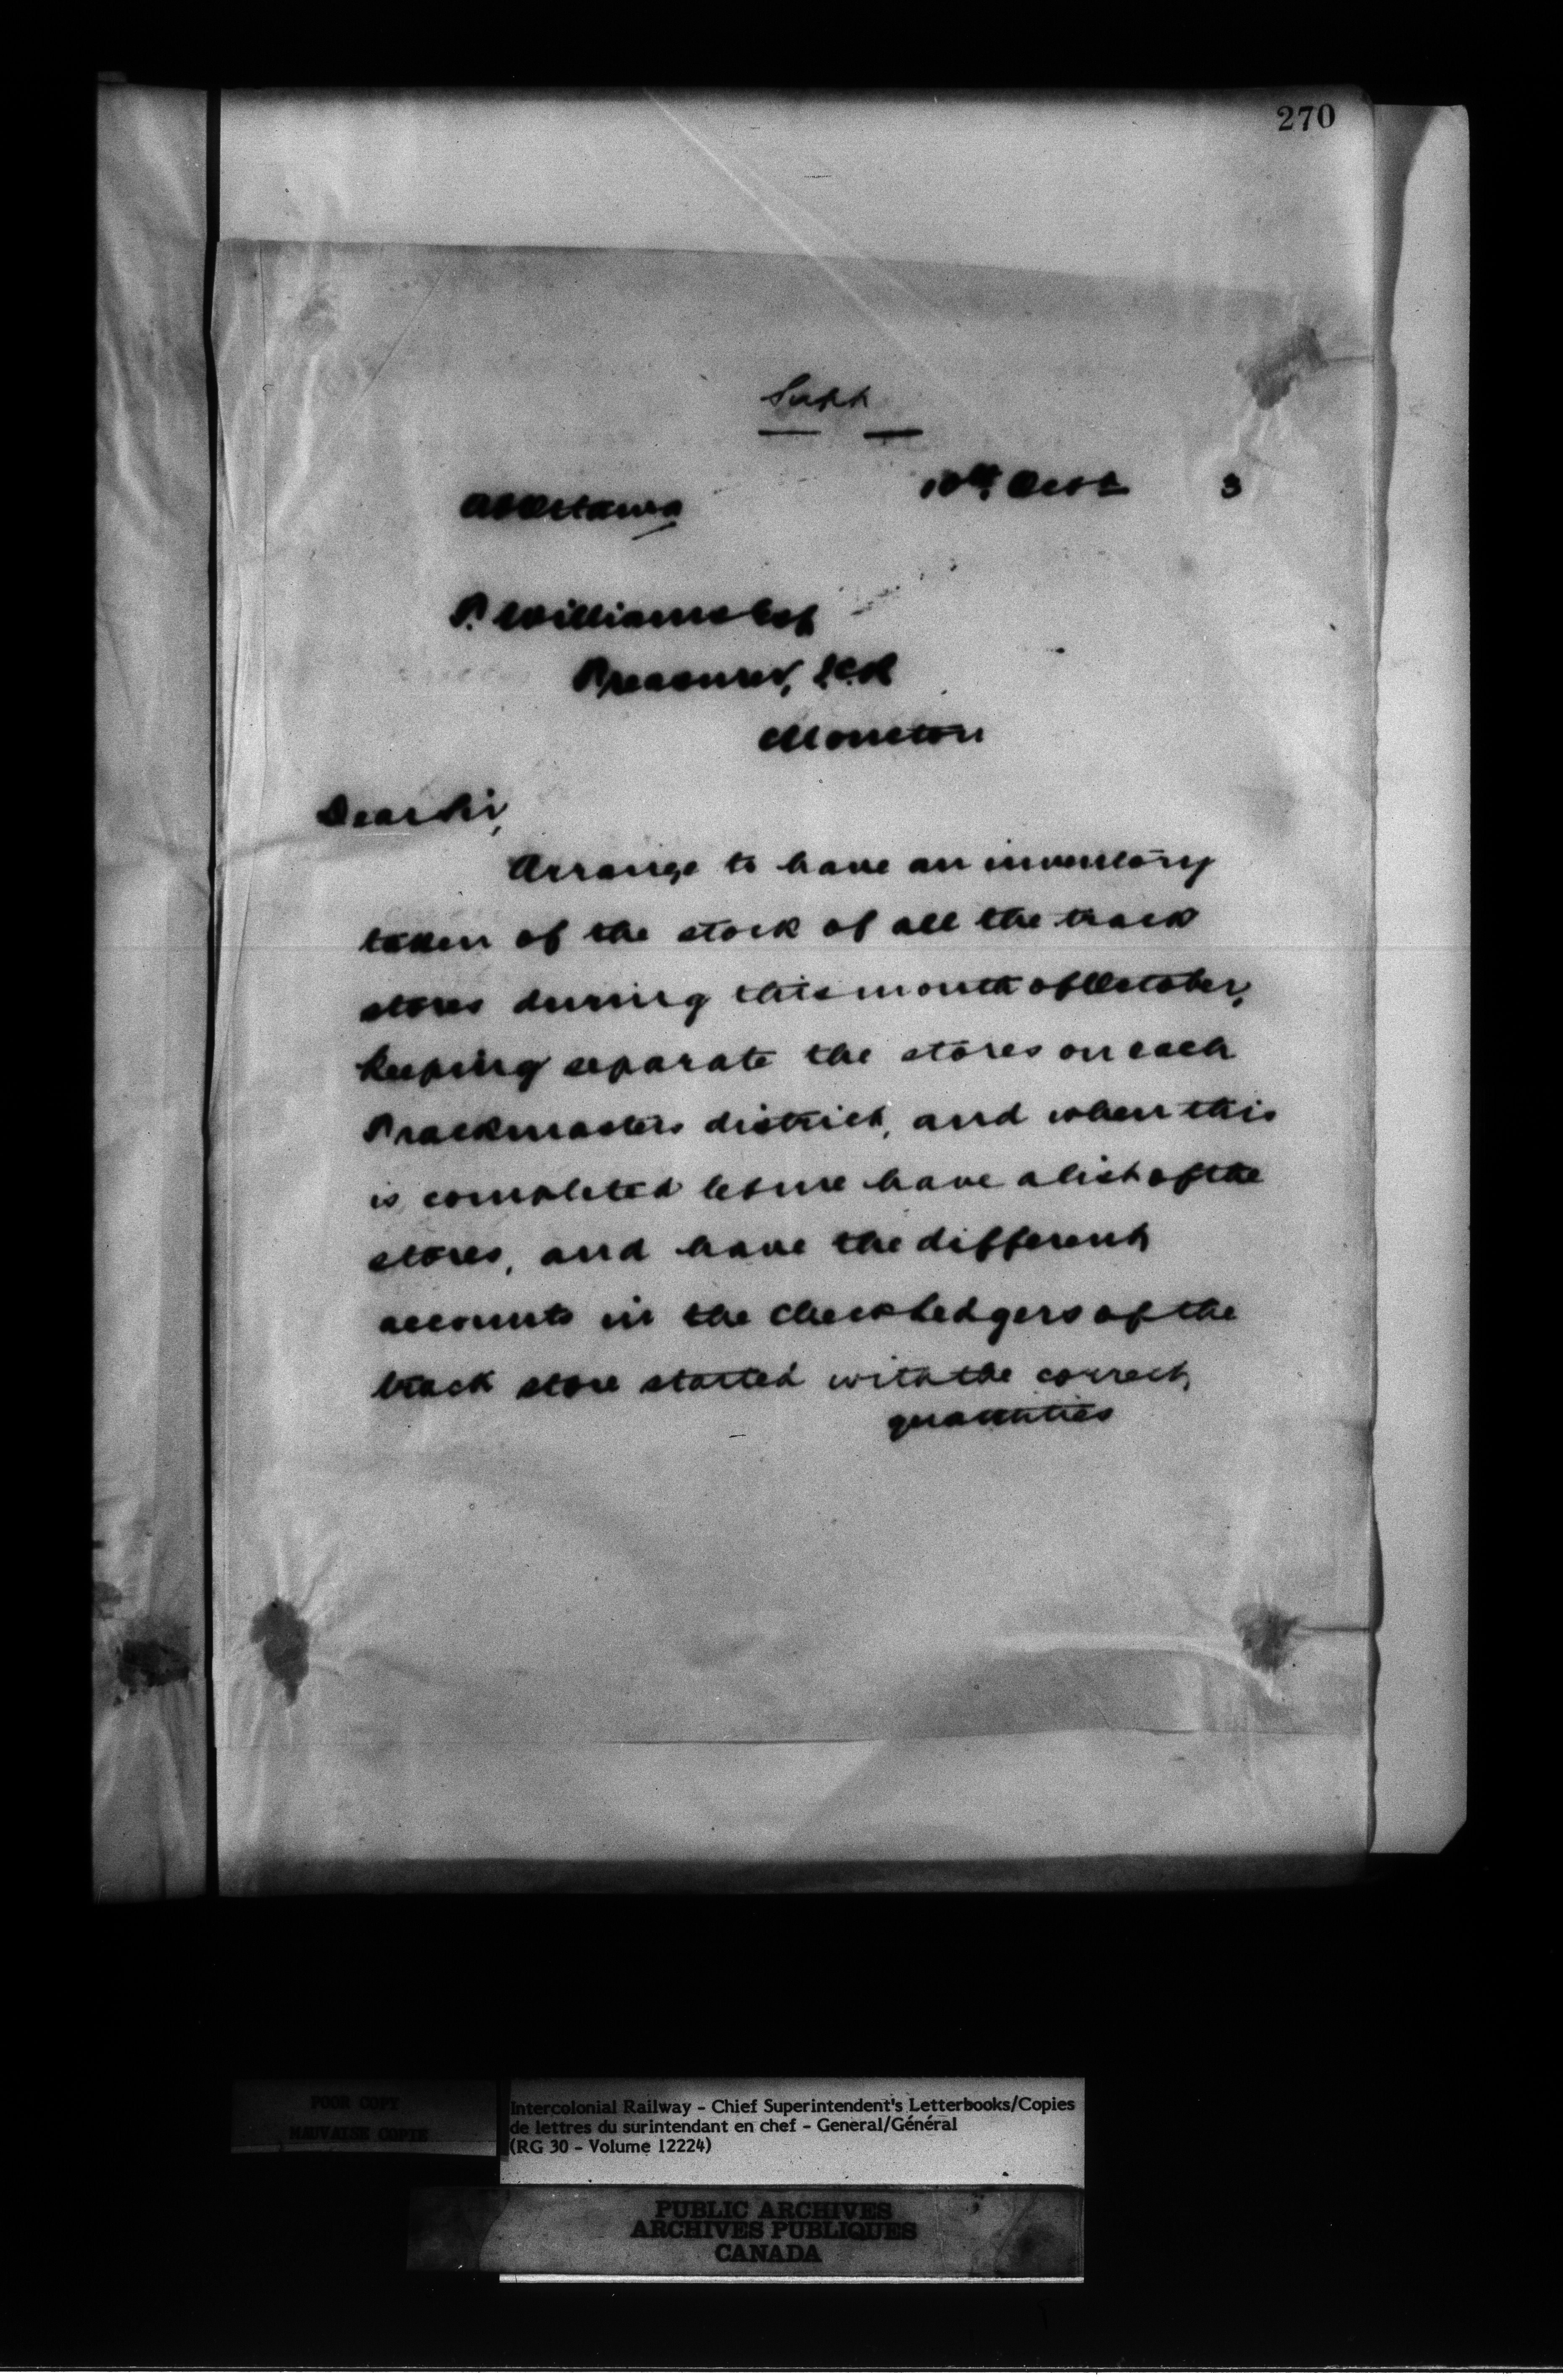 270
Supt
10th Oct 3
At Ottawa
T. Williams Esq
Treasurer, I.C.R
Moncton
Dear Sir,
Arrange to have an inventory
taken of the stock of all the track
stores during this month of October,
keeping separate the stores on each
Trackmasters district, and when this
is completed let me have a list of the
stores, and have the different
accounts in the Check Ledgers of the
track store started with the correct
quantities
POOR COPY
MAUVAISE COPIE
Intercolonial Railway - Chief Superintendent's Letterbooks/Copies
de lettres du surintendant en chef - General/Général
(RG 30 - Volume 12224)
PUBLIC ARCHIVES
ARCHIVES PUBLIQUES
CANADA